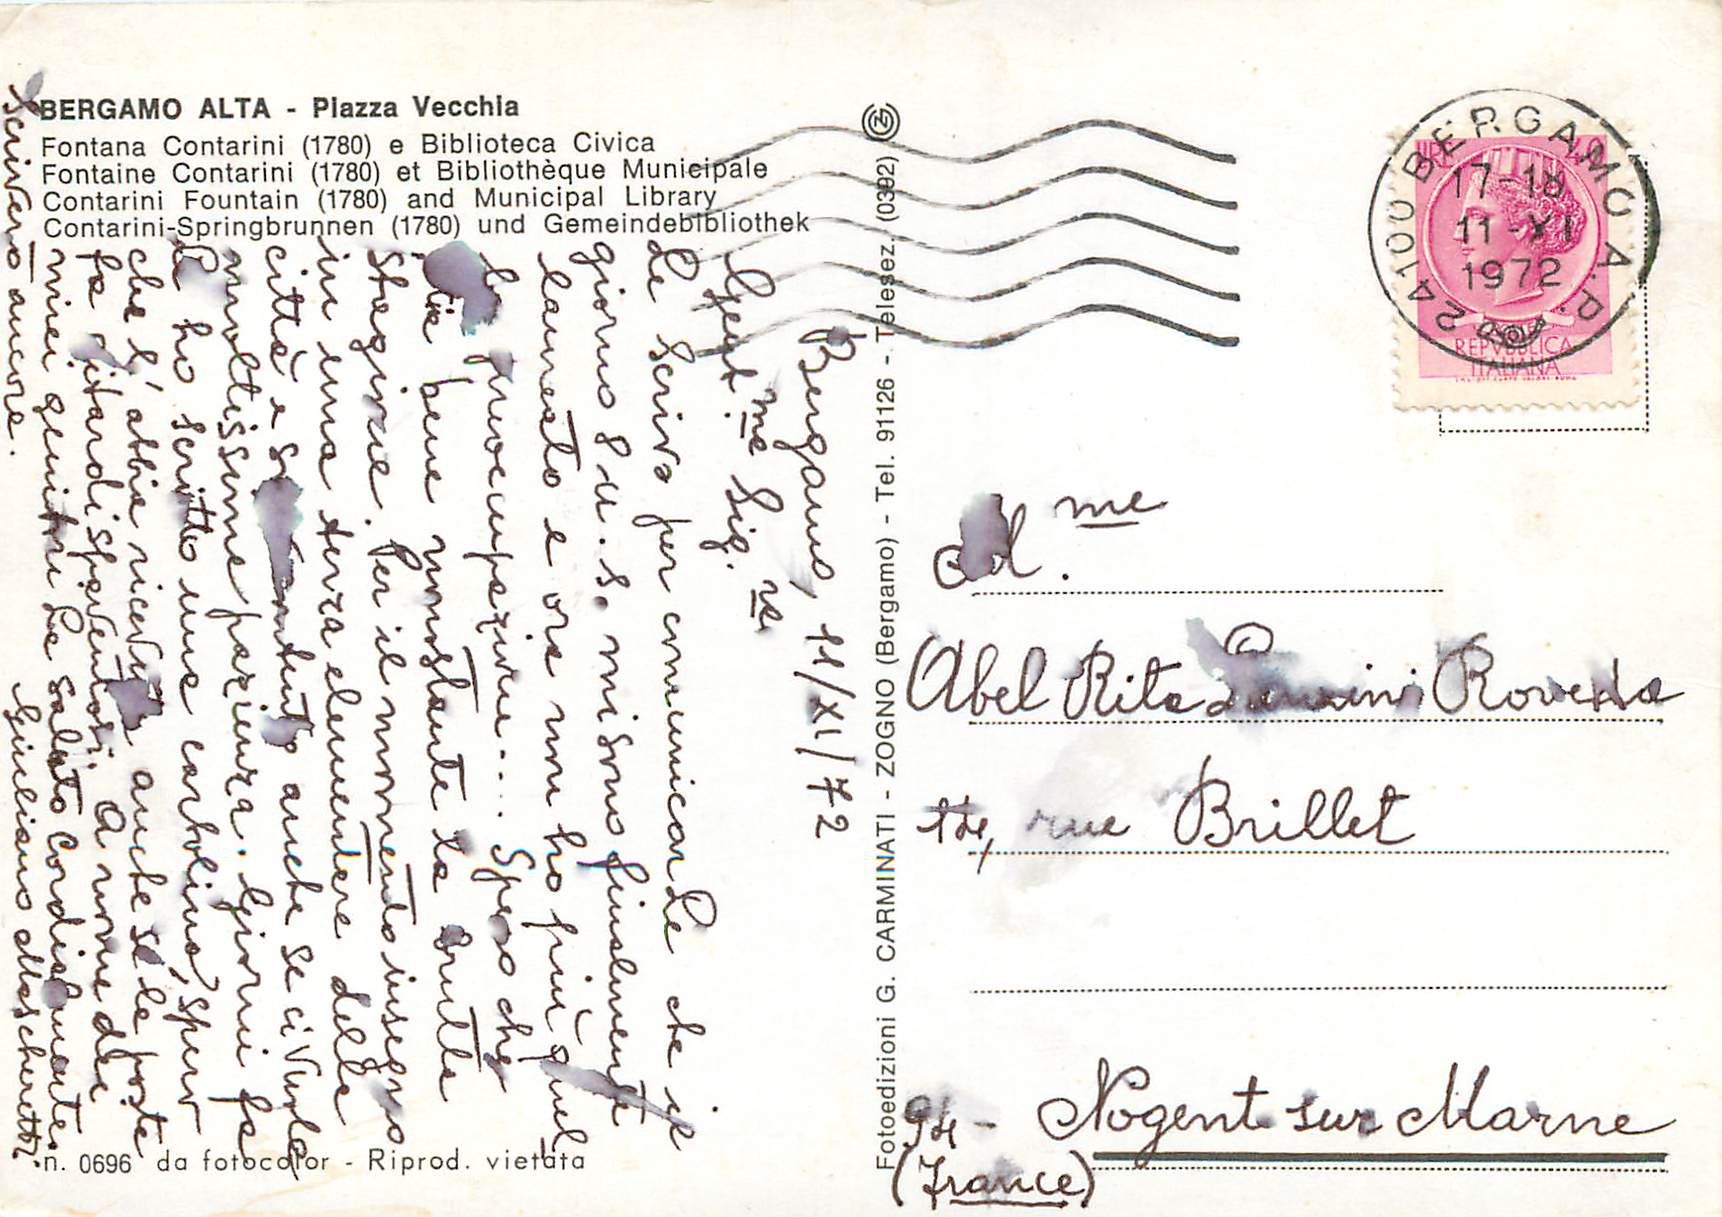 BERGAMO ALTA - Piazza Vecchia
Fontana Contarini (1780) e Biblioteca Civica
Fontaine Contarini (1780) et Bibliothèque Municipale
Contarini Fountain (1780) and Municipal Library
Contarini-Springbrunnen (1780) und Gemeindebibliothek
Bergamo, 11/XI/72
Gent.me Sig.ra
Le scrivo per comunicarLe che il
giorno 8 u.s. mi sono finalmente
laureato e ora non ho più quel
la preoccupazione... Spero che
stia bene nonostante la brutta
stagione. Per il momento insegno
in una terza elementare della
città e sono contento anche se ci vuole
moltissima pazienza. Giorni fa
Le ho scritto una cartolina, spero
che l'abbia ricevuta anche se le poste
fa ritardi spaventosi. A nome dei
miei genitori La saluto cordialmente.
Scriverò ancora.
Giuliano Mascheretti
n. 0696 da fotocolor - Riprod. vietata
Fotoedizioni G. CARMINATI - ZOGNO (Bergamo) - Tel. 91126 - Telesez. (0392)
24100 BERGAMO A.P.
17-18
11-XI
1972
LIRE
REPVBBLICA
ITALIANA
me
Abel Rita Roveda
14, rue Brillet
94 - Nogent sur Marne
(France)